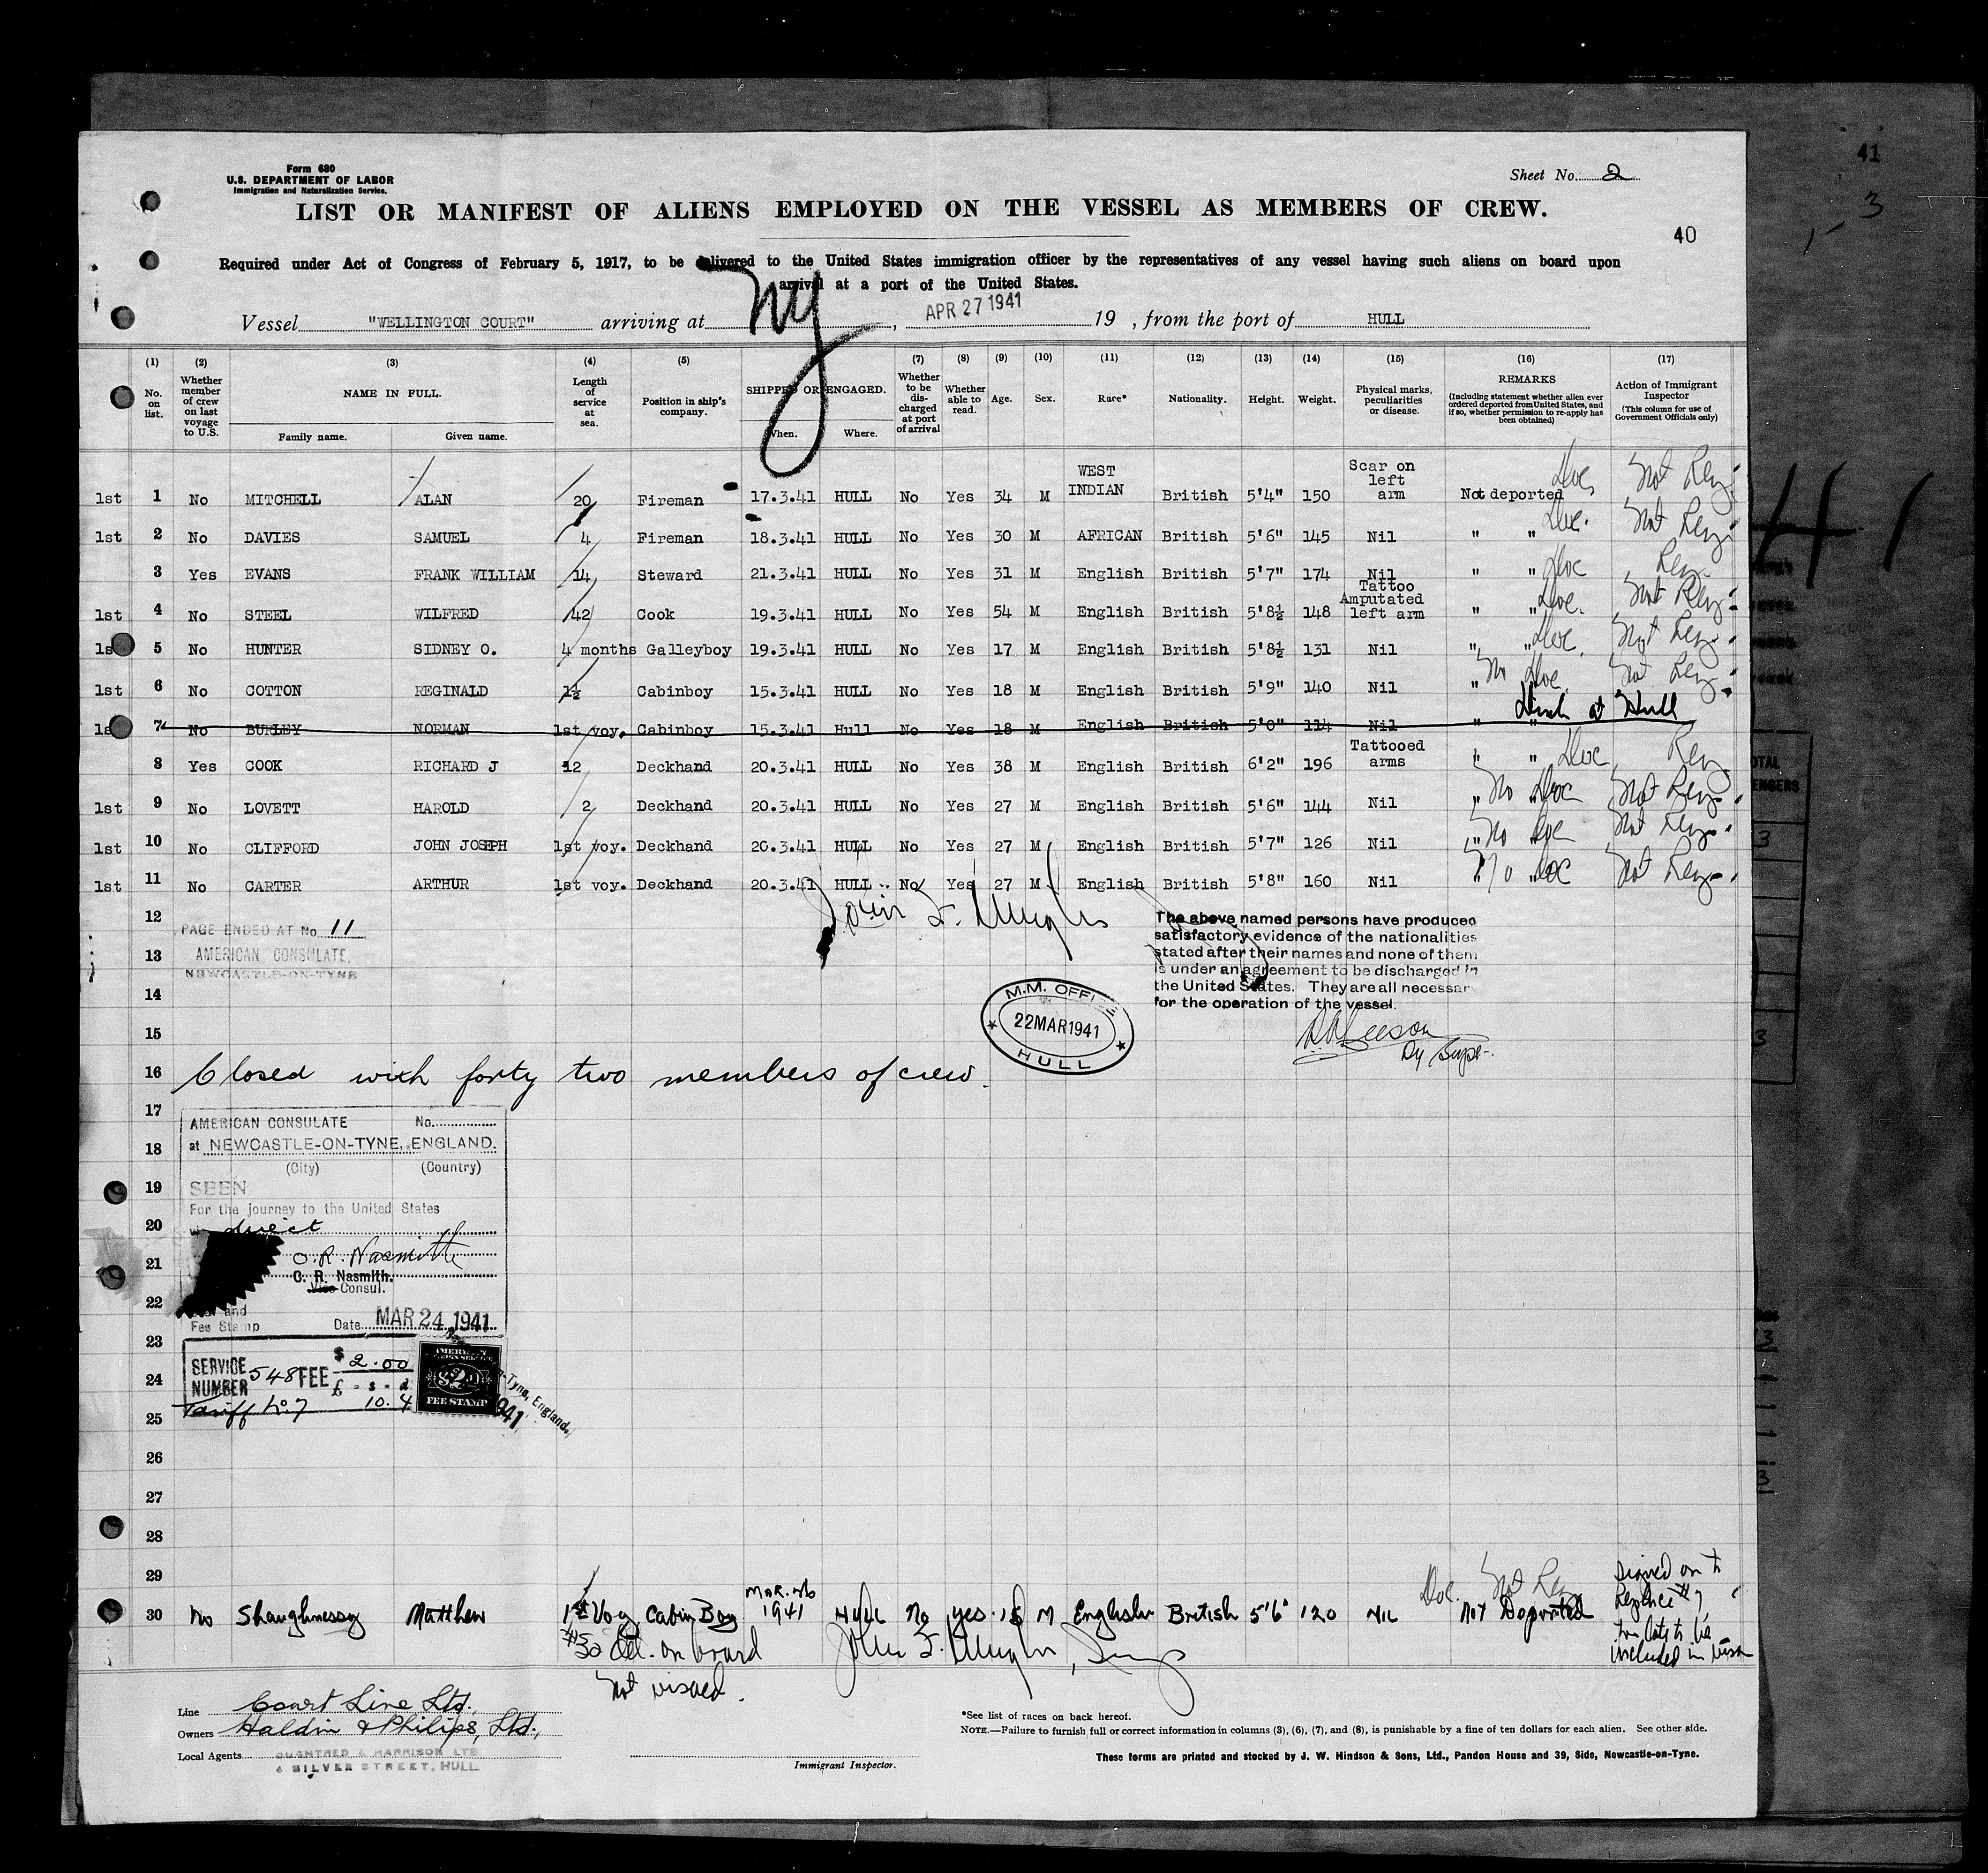 41
3
Form 680
U.S. DEPARTMENT OF LABOR
Immigration and Naturalization Service.
Sheet No. 2
LIST OR MANIFEST OF ALIENS EMPLOYED ON THE VESSEL AS MEMBERS OF CREW.
40
Required under Act of Congress of February 5, 1917, to be delivered to the United States immigration officer by the representatives of any vessel having such aliens on board upon
arrival at a port of the United States.
Vessel "WELLINGTON COURT" arriving at NY, APR 27 1941 19 , from the port of HULL
(1) (2) (3) (4) (5) (7) (8) (9) (10) (11) (12) (13) (14) (15) (16) (17)
No. on list.
Whether member of crew on last voyage to U.S.
NAME IN FULL.
Family name. Given name.
Length of service at sea.
Position in ship's company.
SHIPPED OR ENGAGED.
When. Where.
Whether to be discharged at port of arrival
Whether able to read.
Age. Sex. Race* Nationality. Height. Weight.
Physical marks, peculiarities or disease.
REMARKS
(Including statement whether alien ever ordered deported from United States, and if so, whether permission to re-apply has been obtained)
Action of Immigrant Inspector
(This column for use of Government Officials only)
1st 1 No MITCHELL ALAN 20 Fireman 17.3.41 HULL No Yes 34 M WEST INDIAN British 5'4" 150 Scar on left arm Not deported
1st 2 No DAVIES SAMUEL 4 Fireman 18.3.41 HULL No Yes 30 M AFRICAN British 5'6" 145 Nil " "
3 Yes EVANS FRANK WILLIAM 14 Steward 21.3.41 HULL No Yes 31 M English British 5'7" 174 Nil " "
1st 4 No STEEL WILFRED 42 Cook 19.3.41 HULL No Yes 54 M English British 5'8½ 148 Tattoo Amputated left arm " "
1s 5 No HUNTER SIDNEY O. 4 months Galleyboy 19.3.41 HULL No Yes 17 M English British 5'8½ 131 Nil " "
1st 6 No COTTON REGINALD 1½ Cabinboy 15.3.41 HULL No Yes 18 M English British 5'9" 140 Nil "
1s 7 No BURLEY NORMAN 1st voy. Cabinboy 15.3.41 Hull No Yes 18 M English British 5'0" 114 Nil " " at Hull
8 Yes COOK RICHARD J 12 Deckhand 20.3.41 HULL No Yes 38 M English British 6'2" 196 Tattooed arms " "
1st 9 No LOVETT HAROLD 2 Deckhand 20.3.41 HULL No Yes 27 M English British 5'6" 144 Nil "
1st 10 No CLIFFORD JOHN JOSEPH 1st voy. Deckhand 20.3.41 HULL No Yes 27 M English British 5'7" 126 Nil "
1st 11 No CARTER ARTHUR 1st voy. Deckhand 20.3.41 HULL No Yes 27 M English British 5'8" 160 Nil "
12
PAGE ENDED AT No 11
13
AMERICAN CONSULATE,
NEWCASTLE-ON-TYNE
The above named persons have produced
satisfactory evidence of the nationalities
stated after their names and none of them
is under an agreement to be discharged in
the United States. They are all necessary
for the operation of the vessel.
14
15
M.M. OFFICE
22 MAR 1941
HULL
16 Closed with forty two members of crew.
17
AMERICAN CONSULATE No.
18 at NEWCASTLE-ON-TYNE, ENGLAND.
(City) (Country)
19 SEEN
For the journey to the United States
20 direct
21 O. R. Nasmith
C. R. Nasmith.
Vice Consul.
22 and
Fee Stamp Date MAR 24 1941
23
SERVICE NUMBER 548 FEE $ 2.00
24 £ - s - d
Tariff No. 7 10. 4
$2
FEE STAMP
-Tyne, England.
1941
25
26
27
28
29
30 No Shaughnessy Matthew 1st Voy Cabin Boy MAR. 26 1941 HULL No yes 18 M English British 5'6" 120 NIL Not Deported
Signed on to
Replace #7,
too late to be
included in visa
#30 on board
Not visaed.
Line Court Line Ltd.
Owners Haldin & Philips, Ltd.,
Local Agents OUGHTRED & HARRISON LTD
SILVER STREET, HULL
Immigrant Inspector.
*See list of races on back hereof.
NOTE.—Failure to furnish full or correct information in columns (3), (6), (7), and (8), is punishable by a fine of ten dollars for each alien. See other side.
These forms are printed and stocked by J. W. Hindson & Sons, Ltd., Pandon House and 39, Side, Newcastle-on-Tyne.